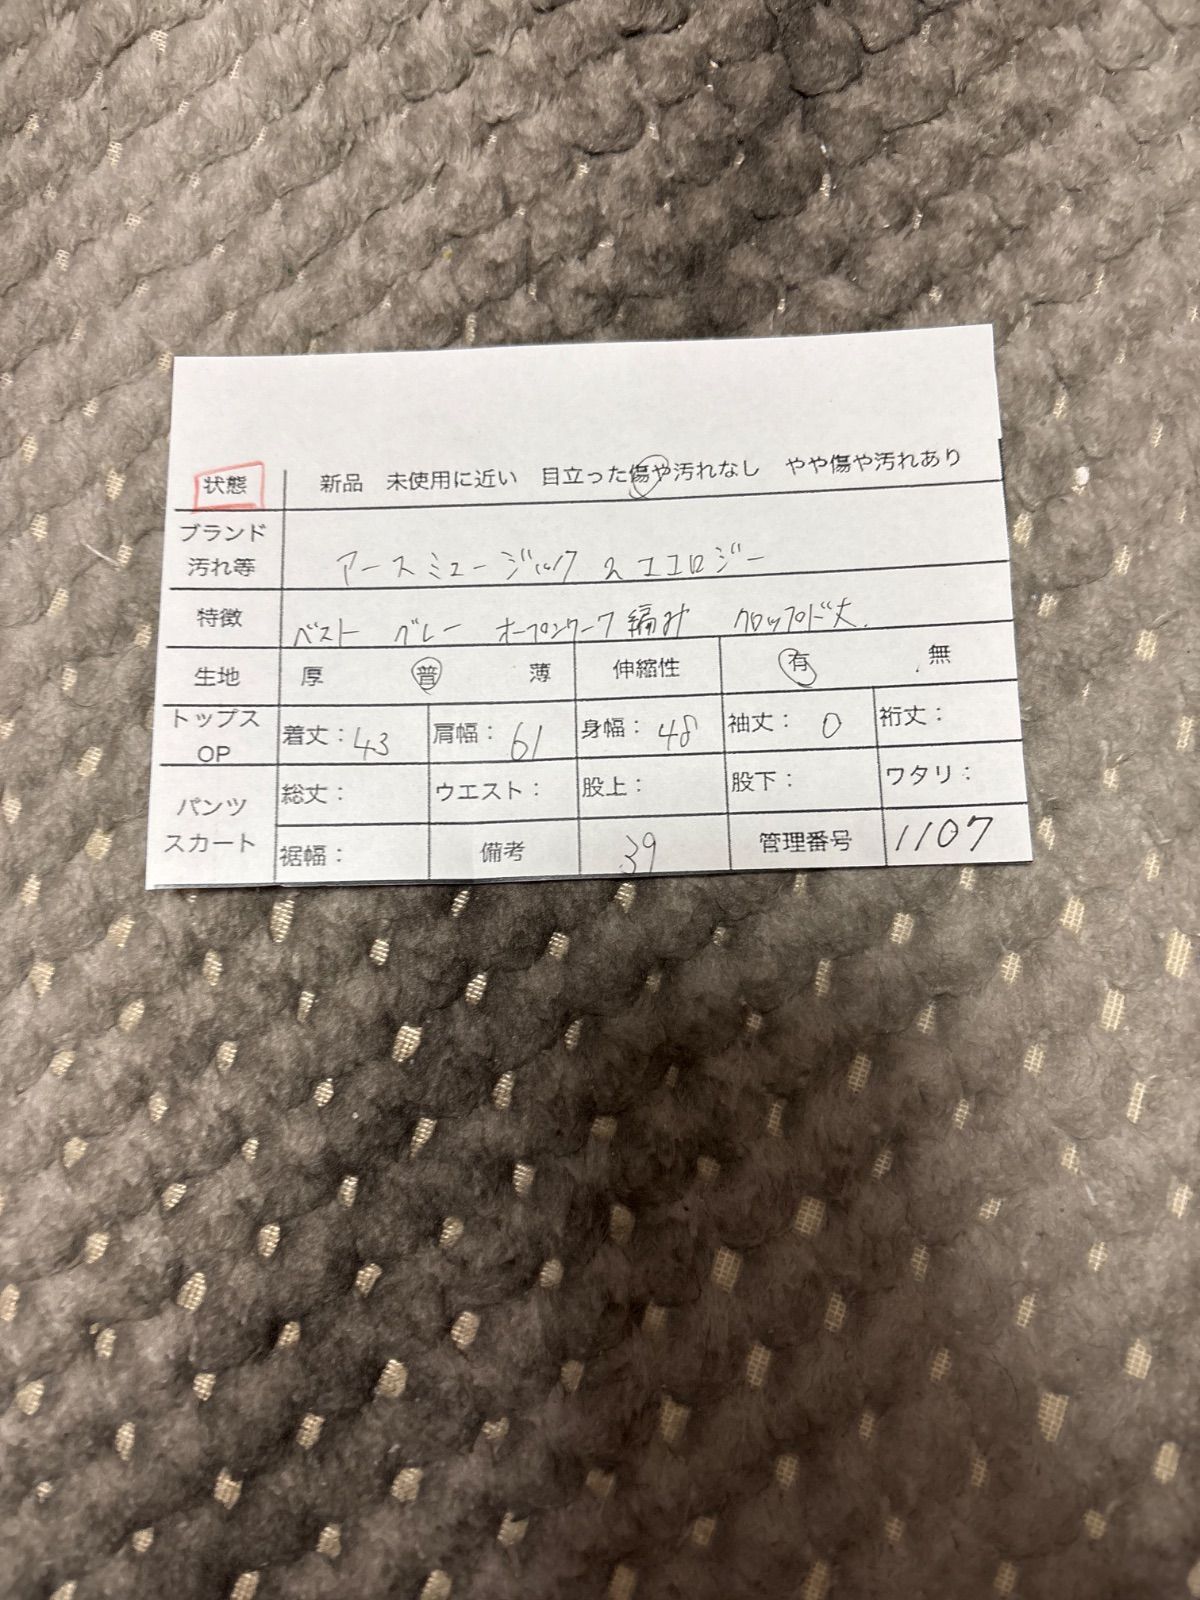 状態 新品 未使用に近い 目立った傷や汚れなし やや傷や汚れあり
ブランド
汚れ等 アースミュージック&エコロジー
特徴 ベスト グレー オープンワーク編み クロップド丈.
生地 厚 普 薄 伸縮性 有 無
トップス
OP 着丈：43 肩幅：61 身幅：48 袖丈：0 裄丈：
パンツ
スカート 総丈： ウエスト： 股上： 股下： ワタリ：
裾幅： 備考 39 管理番号 1107